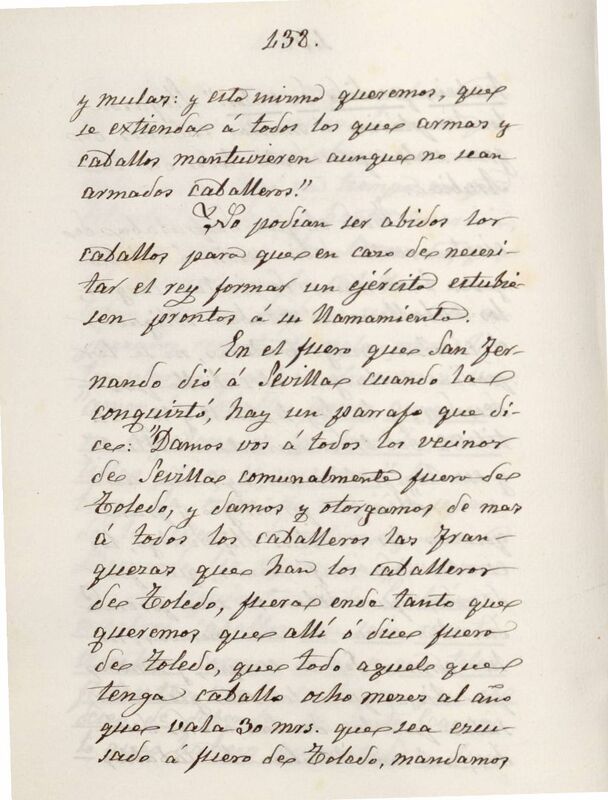 138.
y mulas: y esto mismo queremos, que
se extienda á todos los que armas y
caballos mantuvieren aunque no sean
armados caballeros."
No podían ser abidos los
caballos para que en caso de necesi-
tar el rey formar un ejército estubie-
sen prontos á su llamamiento.
En el fuero que San Fer-
nando dió á Sevilla cuando la
conquistó, hay un parrafo que di-
ce: "Damos vos á todos los vecinos
de Sevilla comunalmente fuero de
Toledo, y damos y otorgamos de mas
á todos los caballeros las fran-
quezas que han los caballeros
de Toledo, fuera ende tanto que
queremos que allí ó dice fuero
de Toledo, que todo aquel que
tenga caballo ocho meses al año
que vala 30 mrs. que sea escu-
sado á fuero de Toledo, mandamos